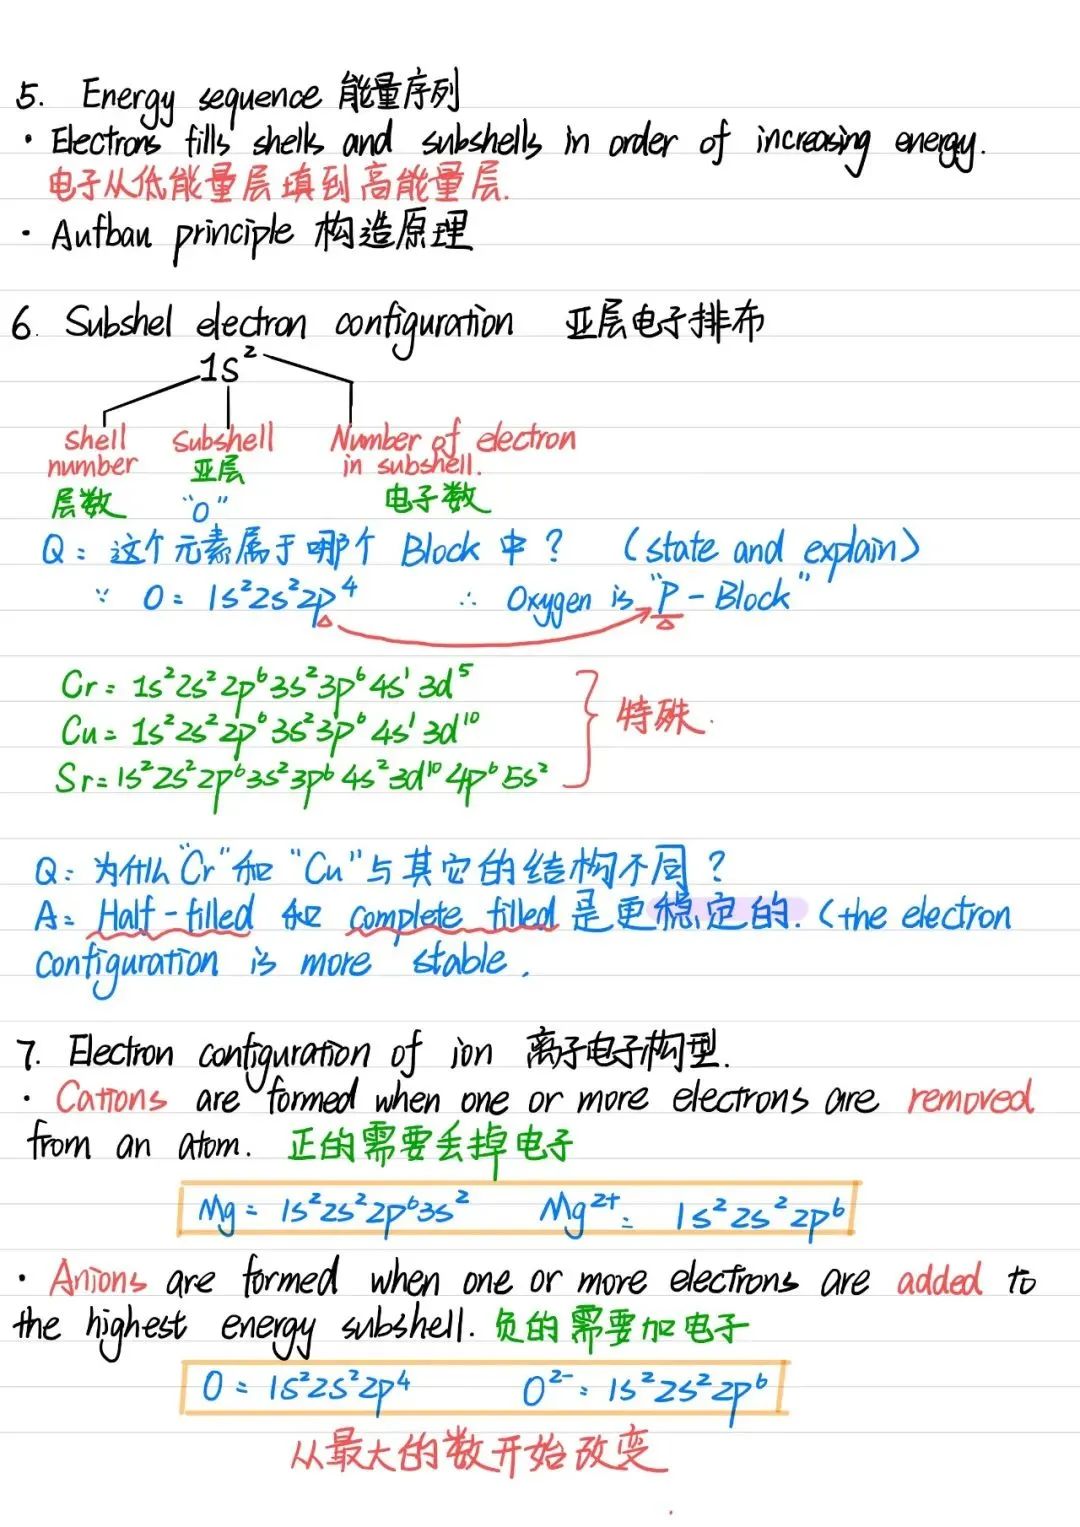 5. Energy sequence 能量序列
· Electrons fills shells and subshells in order of increasing energy.
电子从低能量层填到高能量层.
· Aufbau principle 构造原理
6. Subshel electron configuration 亚层电子排布
1s²
shell Subshell Number of electron
number 亚层 in subshell.
层数 "O" 电子数
Q: 这个元素属于哪个 Block 中? (state and explain)
∵ O = 1s²2s²2p⁴ ∴ Oxygen is "P - Block"
Cr = 1s²2s²2p⁶3s²3p⁶4s¹3d⁵
Cu = 1s²2s²2p⁶3s²3p⁶4s¹3d¹⁰ 特殊.
Sr = 1s²2s²2p⁶3s²3p⁶4s²3d¹⁰4p⁶5s²
Q: 为什么"Cr"和"Cu"与其它的结构不同?
A: Half-filled 和 complete filled 是更稳定的. (the electron
configuration is more stable.
7. Electron configuration of ion 离子电子构型.
· Cations are formed when one or more electrons are removed
from an atom. 正的需要丢掉电子
Mg = 1s²2s²2p⁶3s² Mg²⁺: 1s²2s²2p⁶
· Anions are formed when one or more electrons are added to
the highest energy subshell. 负的需要加电子
O = 1s²2s²2p⁴ O²⁻: 1s²2s²2p⁶
从最大的数开始改变